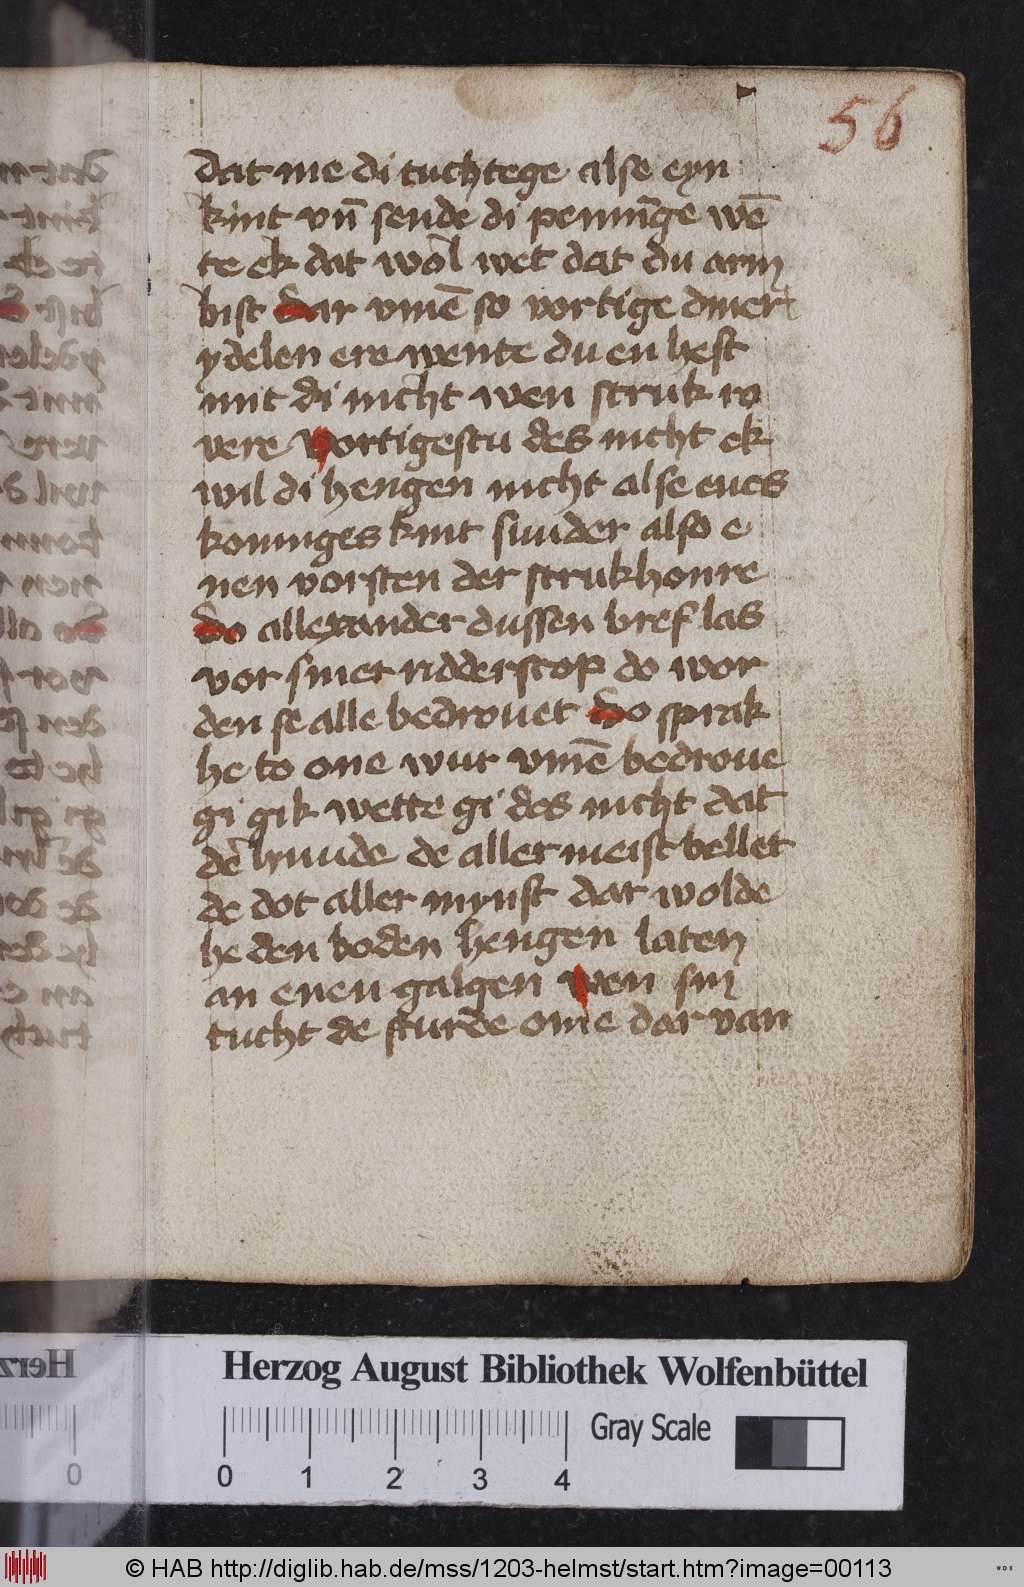 56
dat me di tuchtege alse eyn
kint vn̄ sende di pennīge wē
te ek dat wol wet dat du arm
bist Dar vmē so vortige diner
ydelen ere wente du en hest
mit di nicht wen struk ro
vere Vortigestu des nicht ek
wil di hengen nicht alse enes
koninges kint sunder also e
nen vorsten der strukhonre
Do allexander dussen bref las
vor siner ridderscop do wor
den se alle bedrouet Do sprak
he to one wur vmē bedroue
gi gik wette gi des nicht dat
dē hunde de aller meist bellet
de dot aller mynst dar wolde
he den boden hengen laten
an enen galgen Wen sin
tucht de sturde ome dar van
Herzog August Bibliothek Wolfenbüttel
Gray Scale
0 1 2 3 4
© HAB http://diglib.hab.de/mss/1203-helmst/start.htm?image=00113